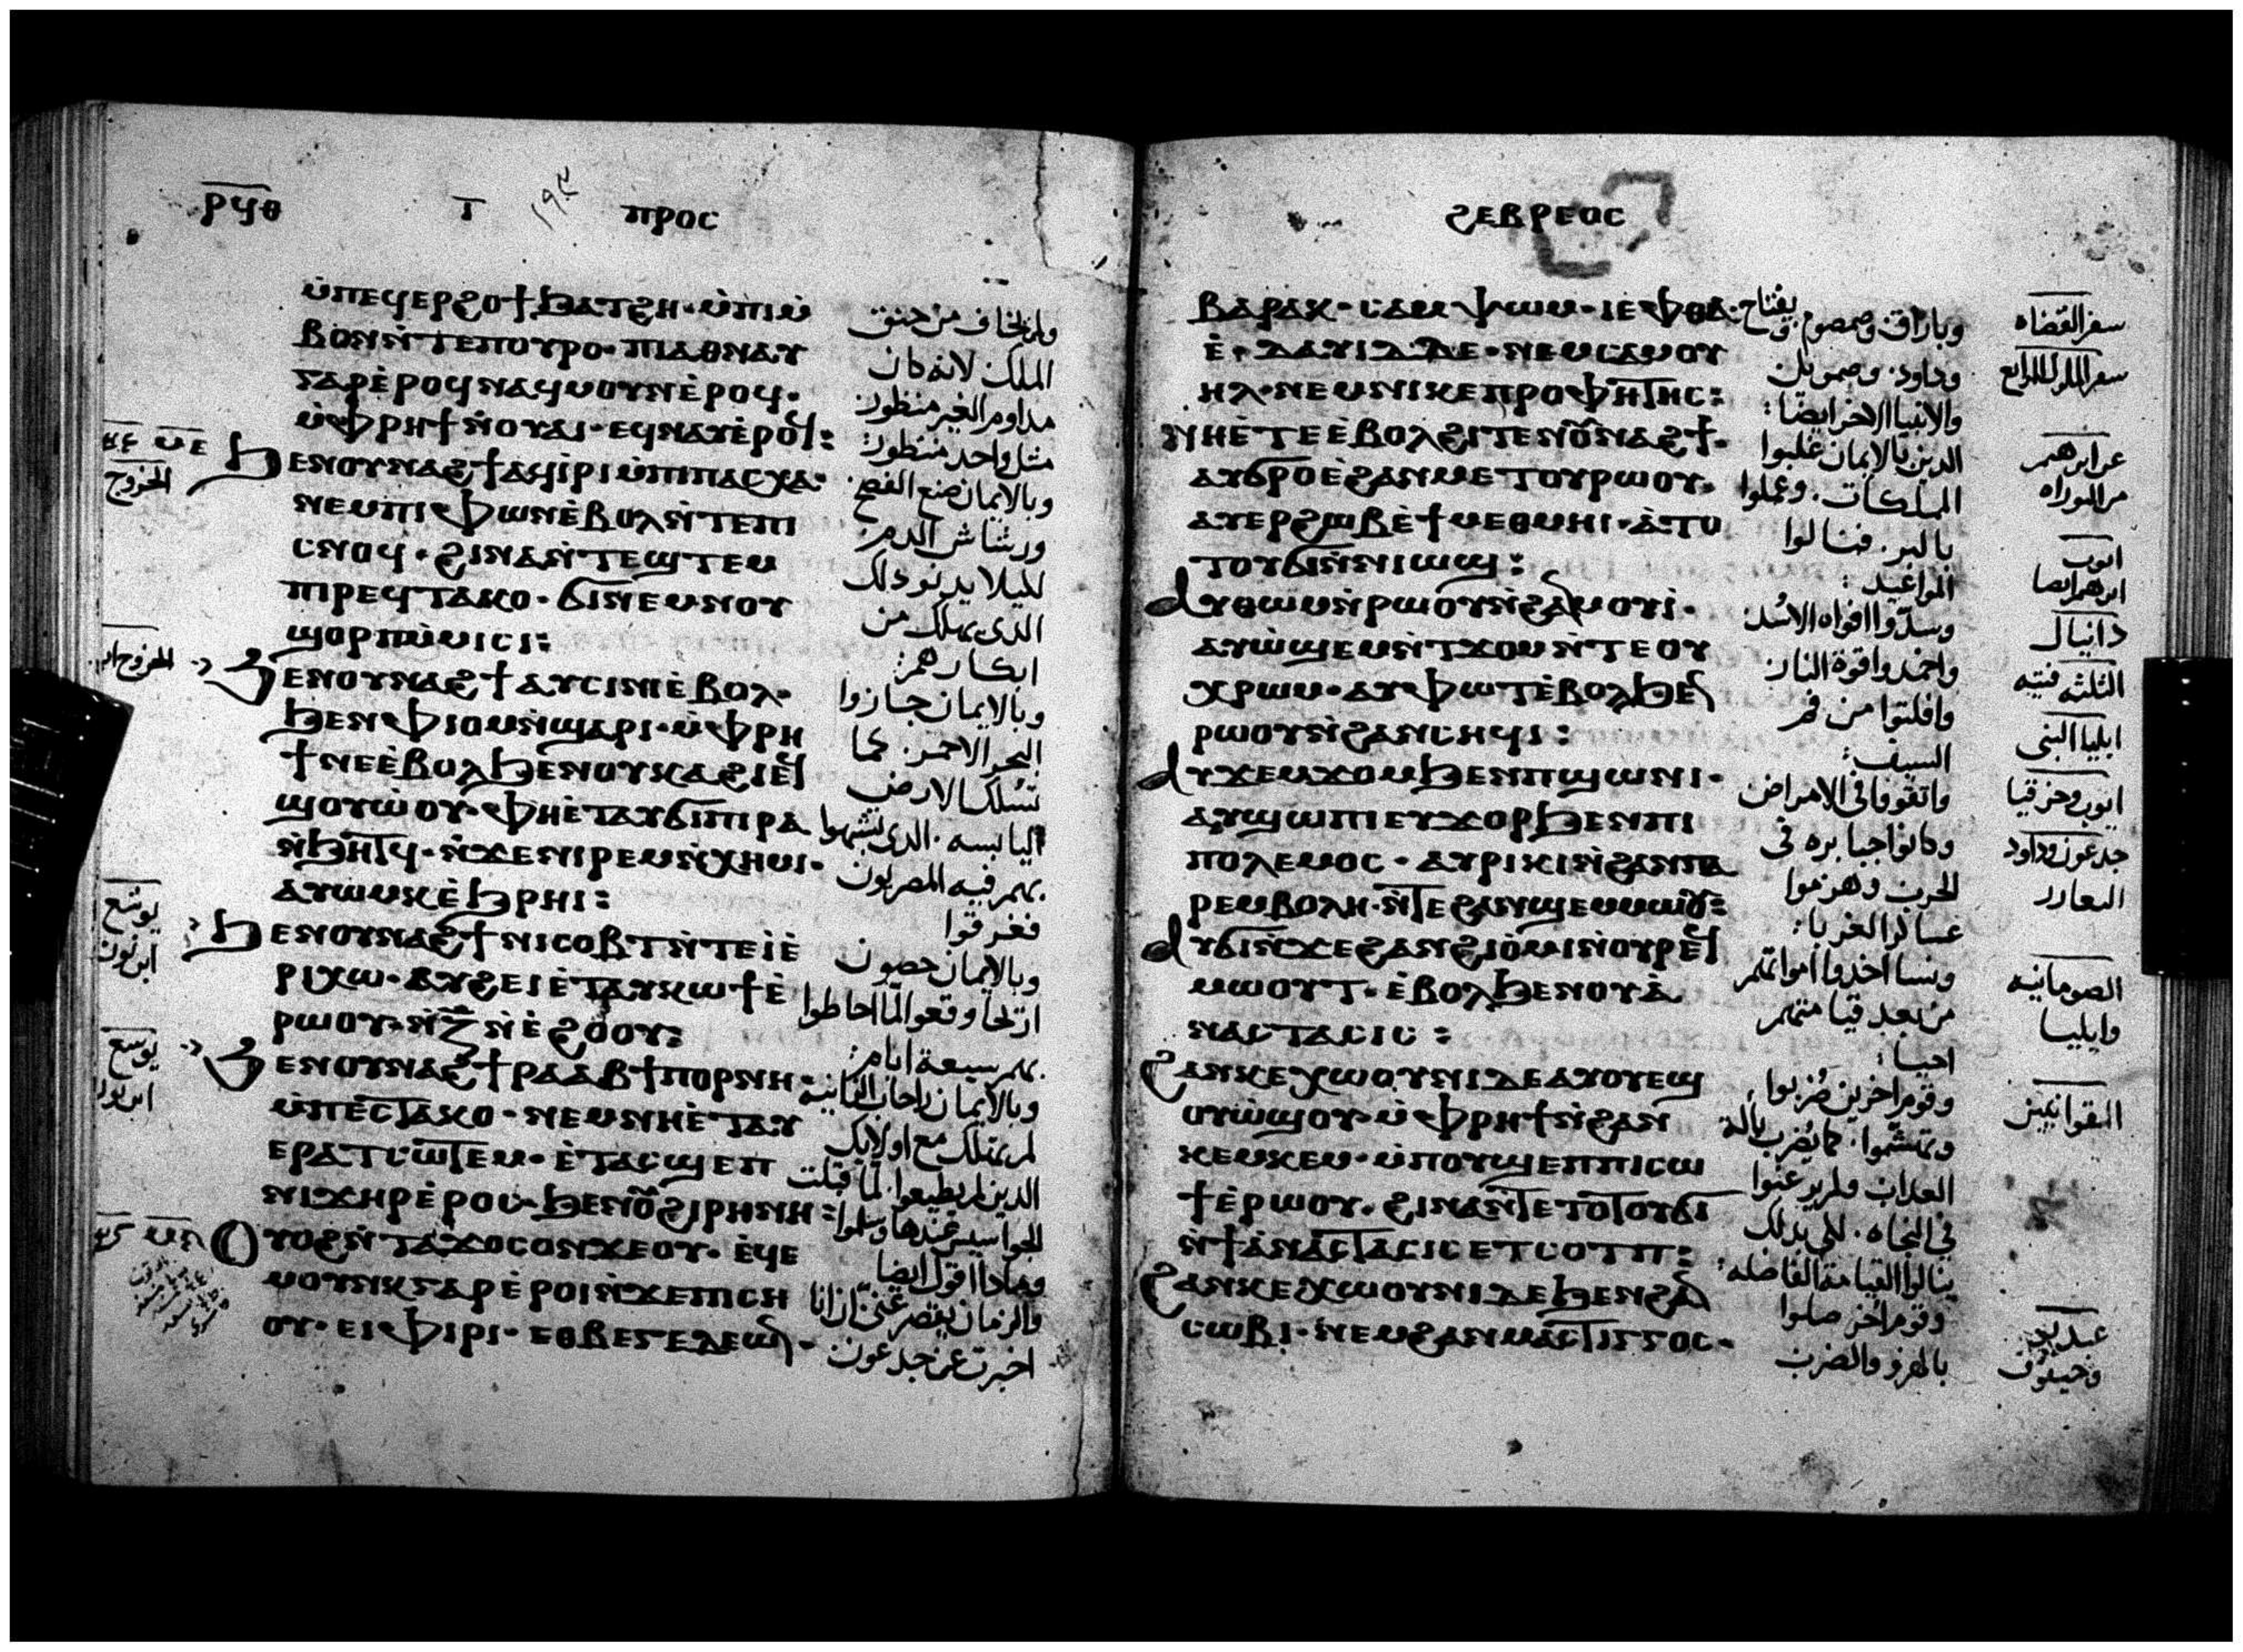 ⲣϥⲑ
ⲡⲣⲟⲥ
ⲙ̀ⲡⲉϥⲉⲣϩⲟϯϧⲁⲧϩⲏ·ⲙ̀ⲡⲓⲙ̀
ⲃⲟⲛⲛ̀ⲧⲉⲡⲟⲩⲣⲟ·ⲡⲓⲁⲑⲛⲁⲩ
ⲅⲁⲣⲉ̀ⲣⲟϥⲛⲁϥⲙⲟⲩⲛⲉ̀ⲣⲟϥ·
ⲙ̀ⲫⲣⲏϯⲛ̀ⲟⲩⲁⲓ·ⲉϥⲛⲁⲩⲉ̀ⲣⲟϥ:
ϧⲉⲛⲟⲩⲛⲁϩϯⲁϥⲓ̀ⲣⲓⲙ̀ⲡⲓⲡⲁⲥⲭⲁ·
ⲛⲉⲙⲡⲓⲫⲱⲛⲉ̀ⲃⲟⲗⲛ̀ⲧⲉⲡⲓ
ⲥⲛⲟϥ·ϩⲓⲛⲁⲛ̀ⲧⲉϣⲧⲉⲙ
ⲡⲓⲣⲉϥⲧⲁⲕⲟ·ϭⲓⲛⲉⲙⲛⲟⲩ
ϣⲟⲣⲡⲙ̀ⲙⲓⲥⲓ:
ϧⲉⲛⲟⲩⲛⲁϩϯⲁⲩⲥⲓⲛⲓⲉ̀ⲃⲟⲗ·
ϧⲉⲛⲫⲓⲟⲙⲛ̀ϣⲁⲣⲓ·ⲙ̀ⲫⲣⲏ
ϯⲛⲉⲉ̀ⲃⲟⲗϧⲉⲛⲟⲩⲕⲁϩⲓⲉϥ
ϣⲟⲩⲱ̀ⲟⲩ·ⲫⲏⲉ̀ⲧⲁⲩϭⲓⲡⲓⲣⲁ
ⲛ̀ϧⲏⲧϥ·ⲛ̀ϫⲉⲛⲓⲣⲉⲙⲛ̀ⲭⲏⲙⲓ·
ⲁⲩⲱⲙⲕⲉ̀ϧⲣⲏⲓ:
ϧⲉⲛⲟⲩⲛⲁϩϯⲛⲓⲥⲟⲃⲧⲛ̀ⲧⲉⲓ̀ⲉ̀
ⲣⲓⲭⲱ·ⲁⲩϩⲉⲓⲉ̀ⲧⲁⲩⲕⲱϯⲉ̀
ⲣⲱⲟⲩ·ⲛ̀ⲍ̅ⲛ̀ⲉ̀ϩⲟⲟⲩ:
ϧⲉⲛⲟⲩⲛⲁϩϯⲣⲁⲁⲃϯⲡⲟⲣⲛⲏ·
ⲙ̀ⲡⲉⲥⲧⲁⲕⲟ·ⲛⲉⲙⲛⲏⲉ̀ⲧⲁⲩ
ⲉⲣⲁⲧⲥⲱⲧⲉⲙ·ⲉ̀ⲧⲁⲥϣⲉⲡ
ⲛⲓϫⲏⲣⲉ̀ⲣⲟⲥ·ϧⲉⲛⲟ̅ϩⲓⲣⲏⲛⲏ:
ⲟⲩⲟϩⲛ̀ⲧⲁϫⲟⲥⲟⲛϫⲉⲟⲩ·ⲉ̀ϥⲉ
ⲙⲟⲩⲛⲕⲅⲁⲣⲉ̀ⲣⲟⲓⲛ̀ϫⲉⲡⲓⲥⲏ
ⲟⲩ·ⲉⲓⲫⲓⲣⲓ·ⲉⲑⲃⲉⲅⲉⲇⲉⲱⲛ·
ولم يخاف من حنق
الملك لانه كان
مداوم الغير منظور
مثل واحد منظور:
وبالايمان صنع الفصح
ورشاش الدم
لكيلا يدنو ذلك
الذي يهلك من
ابكارهم:
وبالايمان جازوا
البحر الاحمر. كما
تسلك الارض
اليابسه. الذي تشبهوا
بهم فيه المصريون
فغرقوا
وبالايمان حصون
اريحا وقعوا لما احاطوا
بهم سبعة ايام:
وبالايمان راحاب الزانيه
لم تهلك مع اولايك
الذين لم يطيعوا. لما قبلت
الجواسيس عندها وسلموا
وماذا اقول ايضا
والزمان يقصر عني ان انا
اخبرت عن جدعون
الخروج
يوشع
ابن نون
يوشع
ابن نون
ϩⲉⲃⲣⲉⲟⲥ
ⲃⲁⲣⲁⲕ·ⲥⲁⲙⲯⲱⲙ·ⲓⲉⲫⲑⲁ·
ⲉ̀·ⲇⲁⲩⲓⲇⲇⲉ·ⲛⲉⲙⲥⲁⲙⲟⲩ
ⲏⲗ·ⲛⲉⲙⲛⲓⲕⲉⲡⲣⲟⲫⲏⲧⲏⲥ:
ⲛⲏⲉ̀ⲧⲉⲉ̀ⲃⲟⲗϩⲓⲧⲉⲛⲟ̅ⲛⲁϩϯ·
ⲁⲩϭⲣⲟⲉ̀ϩⲁⲛⲙⲉⲧⲟⲩⲣⲱⲟⲩ·
ⲁⲩⲉⲣϩⲱⲃⲉ̀ϯⲙⲉⲑⲙⲏⲓ·ⲁ̀ⲧⲟ
ⲧⲟⲩϭⲓⲛ̀ⲛⲓⲱϣ:
ⲁⲩⲑⲱⲙⲛ̀ⲣⲱⲟⲩⲛ̀ϩⲁⲛⲙⲟⲩⲓ̀·
ⲁⲩⲱ̀ϣⲉⲙⲛ̀ⲧϫⲟⲙⲛ̀ⲧⲉⲟⲩ
ⲭⲣⲱⲙ·ⲁⲩⲫⲱⲧⲉ̀ⲃⲟⲗϧⲉⲛ
ⲣⲱⲟⲩⲛ̀ϩⲁⲛⲥⲏϥⲓ:
ⲁⲩϫⲉⲙϫⲟⲙϧⲉⲛⲡϣⲱⲛⲓ·
ⲁⲩϣⲱⲡⲓⲉⲩϫⲟⲣϧⲉⲛⲡⲓ
ⲡⲟⲗⲉⲙⲟⲥ·ⲁⲩⲣⲓⲕⲓⲛ̀ϩⲁⲛⲡⲁ
ⲣⲉⲙⲃⲟⲗⲏ·ⲛ̀ⲧⲉϩⲁⲛϣⲉⲙⲙⲱⲟⲩ:
ⲁⲩϭⲓⲛ̀ϫⲉϩⲁⲛϩⲓⲟ̀ⲙⲓⲛ̀ⲟⲩⲣⲉϥ
ⲙⲱⲟⲩⲧ·ⲉ̀ⲃⲟⲗϧⲉⲛⲟⲩⲁ̀
ⲛⲁⲥⲧⲁⲥⲓⲥ:
ϩⲁⲛⲕⲉⲭⲱⲟⲩⲛⲓⲇⲉⲁⲩⲟⲩⲉϣ
ⲟⲩⲱ̀ϣⲟⲩ·ⲙ̀ⲫⲣⲏϯⲛ̀ϩⲁⲛ
ⲕⲉⲙⲕⲉⲙ·ⲙ̀ⲡⲟⲩϣⲉⲡⲡⲓⲥⲱ
ϯⲉ̀ⲣⲱⲟⲩ·ϩⲓⲛⲁⲛ̀ⲧⲉⲧⲟⲧⲟⲩϭⲓ
ⲛ̀ϯⲁ̀ⲛⲁⲥⲧⲁⲥⲓⲥⲉⲧⲥⲟⲧⲡ:
ϩⲁⲛⲕⲉⲭⲱⲟⲩⲛⲓⲇⲉϧⲉⲛϩⲁⲛ
ⲥⲱⲃⲓ·ⲛⲉⲙϩⲁⲛⲙⲁⲥⲧⲓⲅⲅⲟⲥ·
وباراق وصمصوم ويفتاح
وداود. وصمويل
والانبيا الاخر ايضا:
الذين بالايمان غلبوا
المملكات. وعملوا
بالبر. فنالوا
المواعيد:
وسدوا افواه الاسد
واخمدوا قوة النار
وافلتوا من فم
السيف:
واتقووا في الامراض
وكانوا جبابره في
الحرب وهزموا
عساكر الغربا:
ونسا اخذوا امواتهم
من بعد قيامتهم
احيا:
وقوم اخرين ضربوا
وتهشموا. كما يضرب بالة
العذاب ولم يرغبوا
في النجاه. لكي بذلك
ينالوا القيامة الفاضله:
وقوم اخر صلوا
بالهزو والضرب
سفر القضاه
سفر الملوك الرابع
عن ابرهيم
من التوراه
ايوب
ابرهيم ايضا
دانيال
الثلثه فتيه
ايليا النبي
ايوب وحزقيا
جدعون وداود
الصومانيه
وايليا